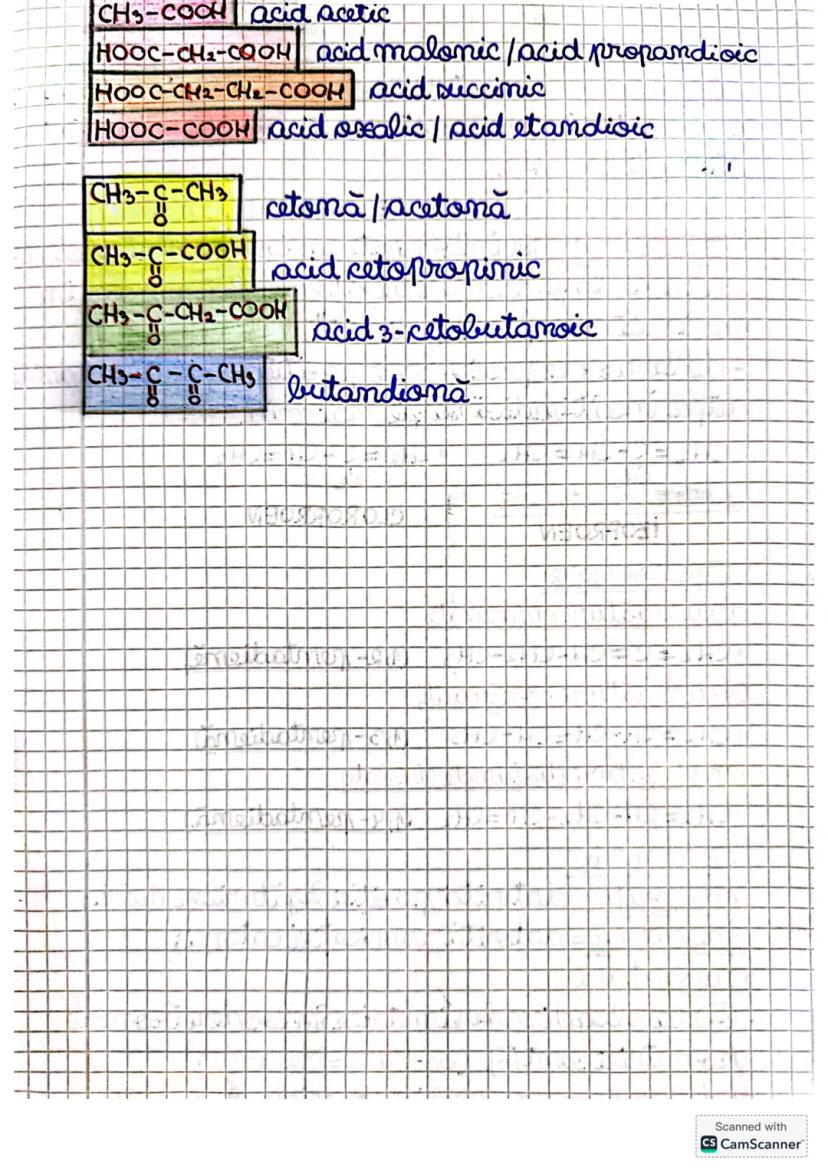 CH3-COOH acid acetic
HOOC-CH2-COOH acid malonic / acid propandioic
HOOC-CH2-CH2-COOH acid succinic
HOOC-COOH acid oxalic / acid etandioic
CH3-C-CH3 cetonă / acetonă
||
O
CH3-C-COOH acid cetopropinic
||
O
CH3-C-CH2-COOH acid 3-cetobutanoic
||
O
CH3-C-C-CH3 butandionă
|| ||
O O
Scanned with
CS CamScanner